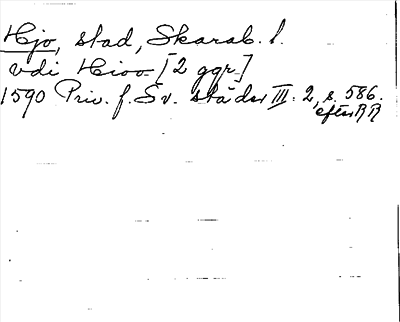 Hjo, stad, Skarab. l.
vdi Hioo [2 ggr]
1590 Priv. f. Sv. städer III. 2, s. 586.
efter RR